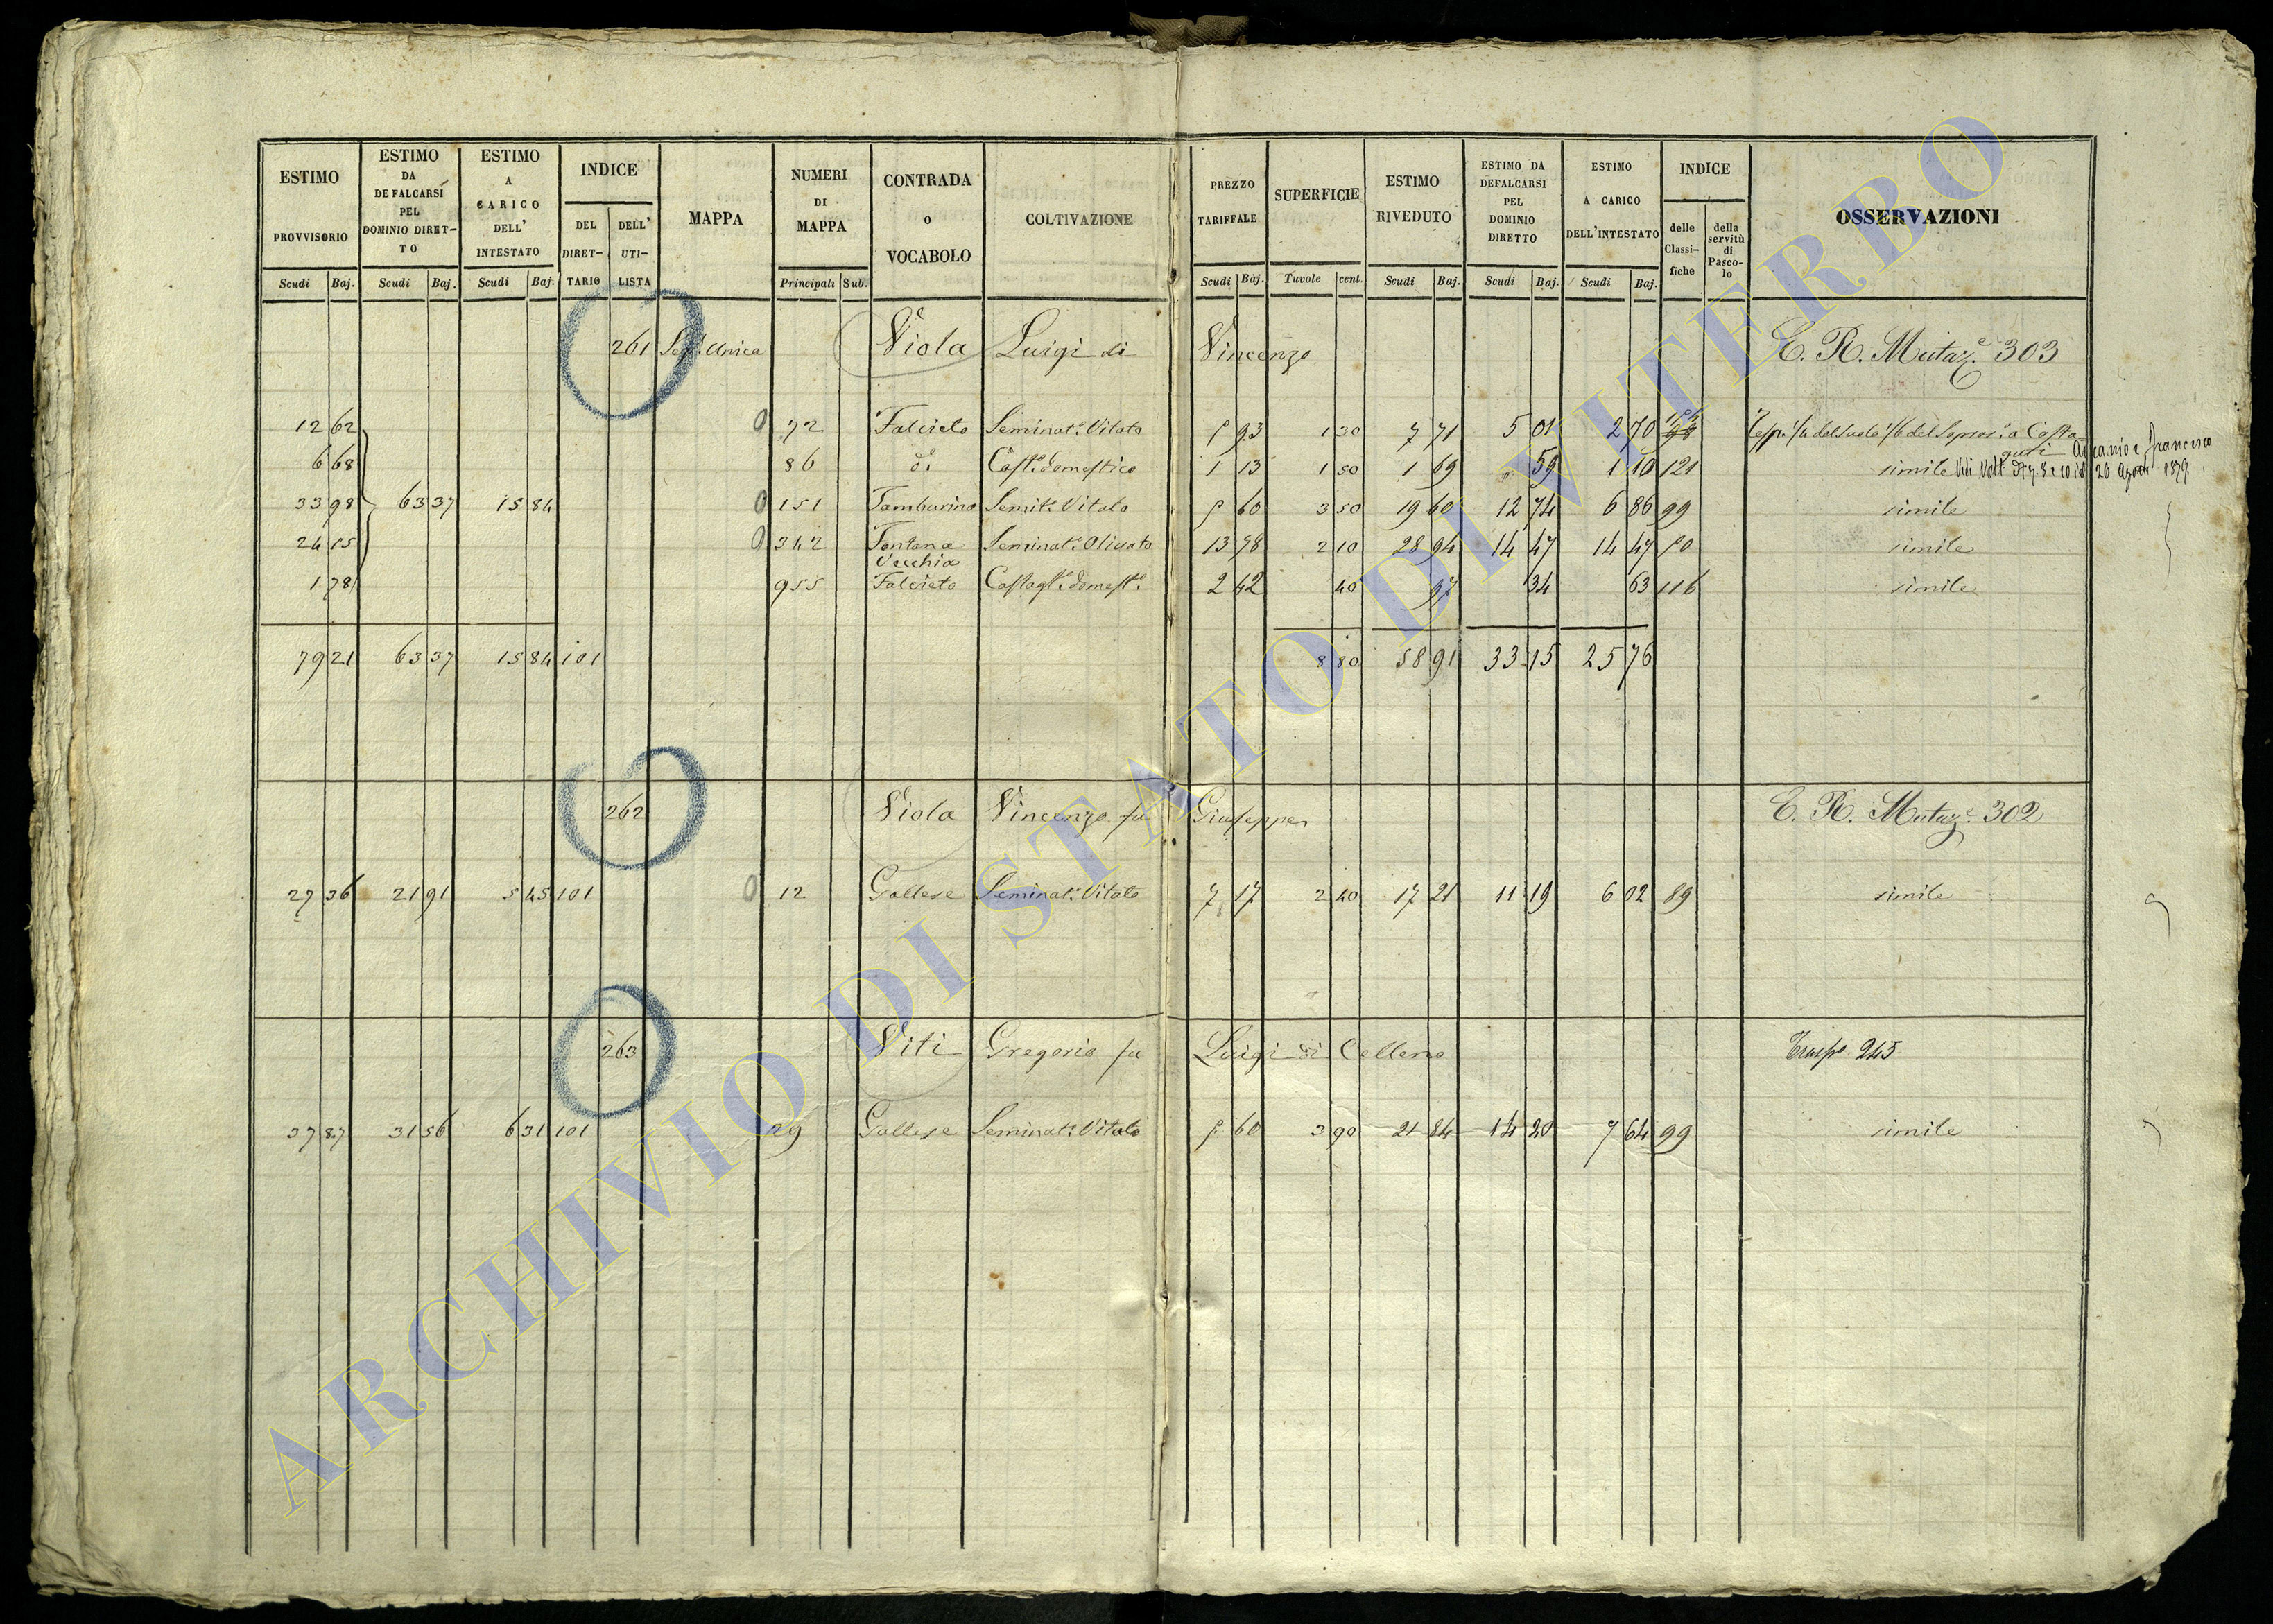 ESTIMO PROVVISORIO Scudi Baj.
ESTIMO DA DEFALCARSI PEL DOMINIO DIRETTO Scudi Baj.
ESTIMO A CARICO DELL' INTESTATO Scudi Baj.
INDICE DEL DIRETTARIO DELL' UTILISTA
MAPPA
NUMERI DI MAPPA Principali Sub.
CONTRADA O VOCABOLO
COLTIVAZIONE
PREZZO TARIFFALE Scudi Baj.
SUPERFICIE Tavole cent.
ESTIMO RIVEDUTO Scudi Baj.
ESTIMO DA DEFALCARSI PEL DOMINIO DIRETTO Scudi Baj.
ESTIMO A CARICO DELL'INTESTATO Scudi Baj.
INDICE delle Classifiche della servitù di Pascolo
OSSERVAZIONI
261 Sez.e Unica Viola Luigi di Vincenzo E. R. Mutaz.e 303
12 62 0 72 Falcieto Seminat.o Vitato 5 93 1 30 7 71 5 01 2 70
6 68 86 d.o Cast.o domestico 1 13 1 50 1 69 59 1 10 121 simile
33 98 63 37 15 84 0 151 Tamburino Semit.o Vitato 5 60 3 50 19 60 12 74 6 86 99 simile
24 15 0 342 Fontana Vecchia Seminat.o Olivato 13 78 2 10 28 94 14 47 14 47 50 simile
1 78 955 Falcieto Castagt.o domest.o 2 42 40 97 34 63 116 simile
79 21 63 37 15 84 101 8 80 58 91 33 15 25 76
262 Viola Vincenzo fu Giuseppe E. R. Mutaz.e 302
27 36 21 91 5 45 101 0 12 Gallese Seminat.o Vitato 7 17 2 40 17 21 11 19 6 02 89 simile
263 Viti Gregorio fu Luigi di Celleno Trasp.o 245
37 87 31 56 6 31 101 29 Gallese Seminat.o Vitato 5 60 3 90 21 84 14 20 7 64 99 simile
ARCHIVIO DI STATO DI VITERBO